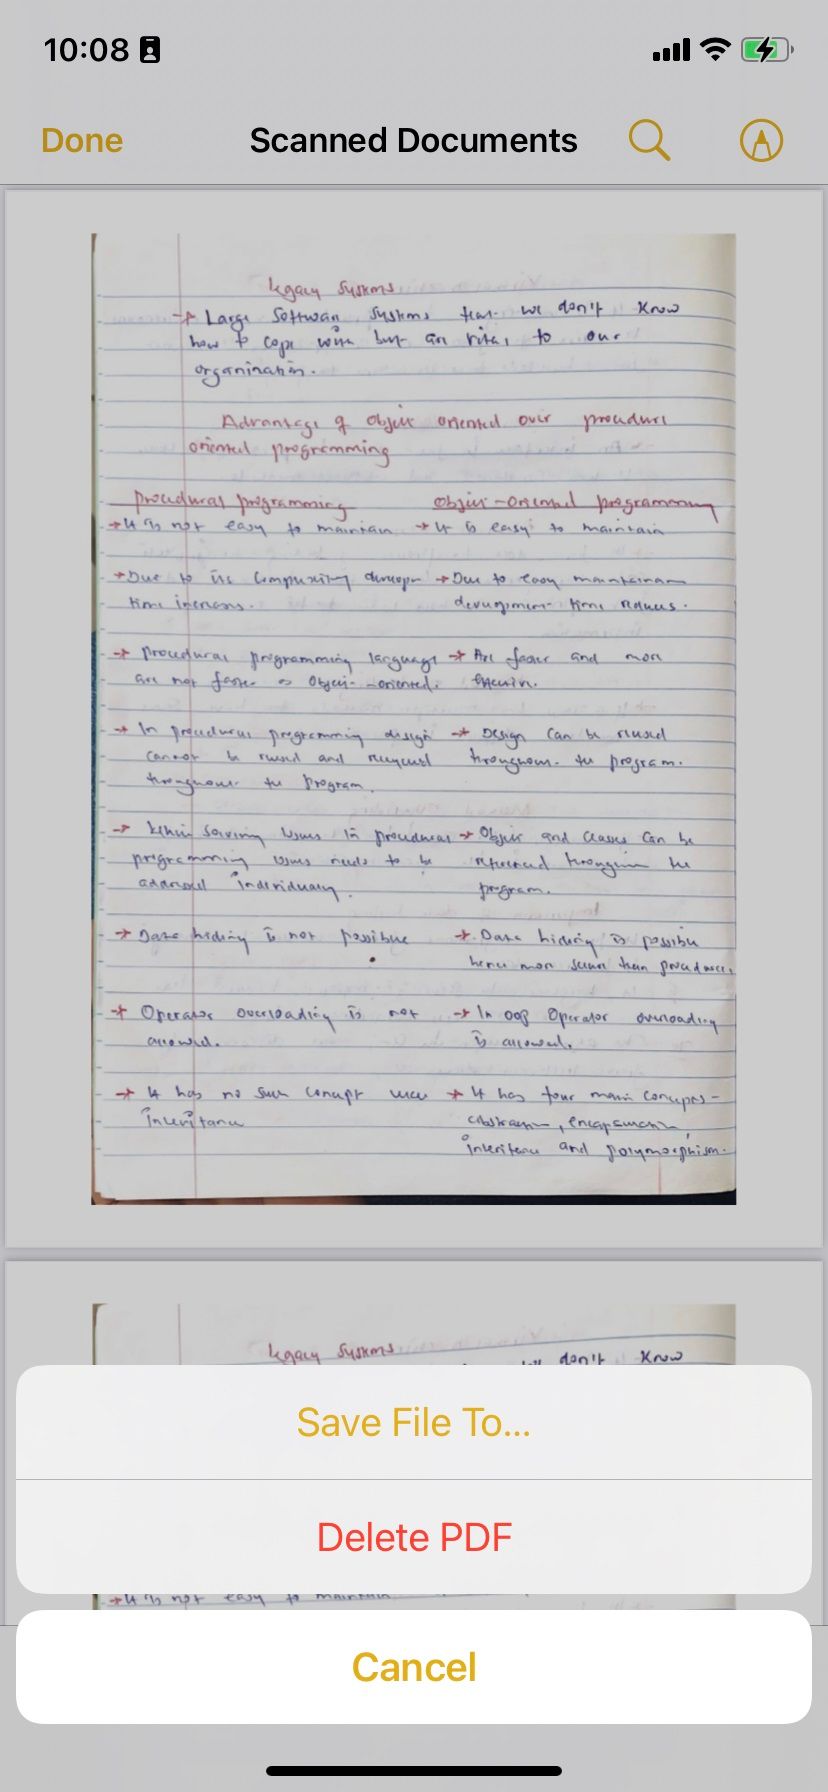 10:08
Done Scanned Documents
Legacy Systems
→ Large Software Systems that we don't know
how to cope with but are vital to our
organization.
Advantage of object oriented over procedure
oriented programming
Procedural programming Object-Oriented programming
→ It is not easy to maintain → It is easy to maintain
→ Due to its complexity develop → Due to easy maintenance
time increases. development time reduces.
→ Procedural programming language → Are faster and more
are not faster as object-oriented. effective.
→ In procedural programming design → Design can be reused
cannot be reused and recycled throughout the program.
throughout the program.
→ When solving issues in procedural → Object and classes can be
programming issues needs to be referenced throughout the
addressed individually. program.
→ Data hiding is not possible → Data hiding is possible
hence more secure than procedural.
→ Operator overloading is not → In oop Operator overloading
allowed. is allowed.
→ It has no such concept like → It has four main concepts-
inheritance abstraction, encapsulation,
inheritance and polymorphism.
Legacy Systems
don't know
Save File To...
Delete PDF
→ It is not easy to maintain
Cancel